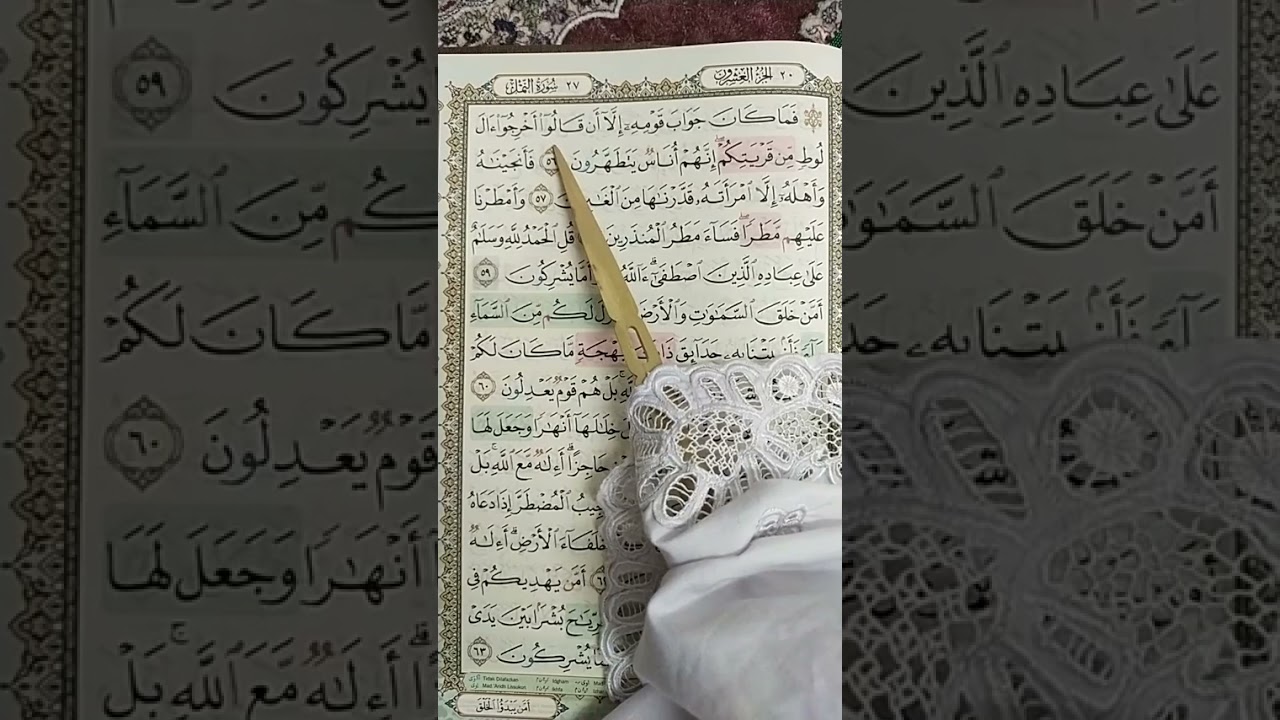 ٢٠ الجزء العشرون
٢٧ سورة النمل
۞ فَمَا كَانَ جَوَابَ قَوْمِهِۦٓ إِلَّآ أَن قَالُوٓا۟ أَخْرِجُوٓا۟ ءَالَ
لُوطٍ مِّن قَرْيَتِكُمْ ۖ إِنَّهُمْ أُنَاسٌ يَتَطَهَّرُونَ ٥٦ فَأَنجَيْنَٰهُ
وَأَهْلَهُۥٓ إِلَّا ٱمْرَأَتَهُۥ قَدَّرْنَٰهَا مِنَ ٥٧ وَأَمْطَرْنَا
عَلَيْهِم مَّطَرًا ۖ فَسَآءَ مَطَرُ ٱلْمُنذَرِينَ قُلِ ٱلْحَمْدُ لِلَّهِ وَسَلَٰمٌ
عَلَىٰ عِبَادِهِ ٱلَّذِينَ ٱصْطَفَىٰٓ ۗ ءَآللَّهُ أَمَّا يُشْرِكُونَ ٥٩
أَمَّنْ خَلَقَ ٱلسَّمَٰوَٰتِ وَٱلْأَرْضَ لَكُم مِّنَ ٱلسَّمَآءِ
بِهِۦ حَدَآئِقَ بَهْجَةٍ مَّا كَانَ لَكُمْ
بَلْ هُمْ قَوْمٌ يَعْدِلُونَ ٦٠
خِلَٰلَهَآ أَنْهَٰرًا وَجَعَلَ لَهَا
حَاجِزًا ۗ أَءِلَٰهٌ مَّعَ ٱللَّهِ ۚ بَلْ
ٱلْمُضْطَرَّ إِذَا دَعَاهُ
ٱلْأَرْضِ ۗ أَءِلَٰهٌ
أَمَّن يَهْدِيكُمْ فِى
بُشْرًۢا بَيْنَ يَدَىْ
يُشْرِكُونَ ٦٣
Tidak Dilafazkan Idgham
Mad 'Aridh Lissukun Ikhfa
أمن يبدؤا الخلق